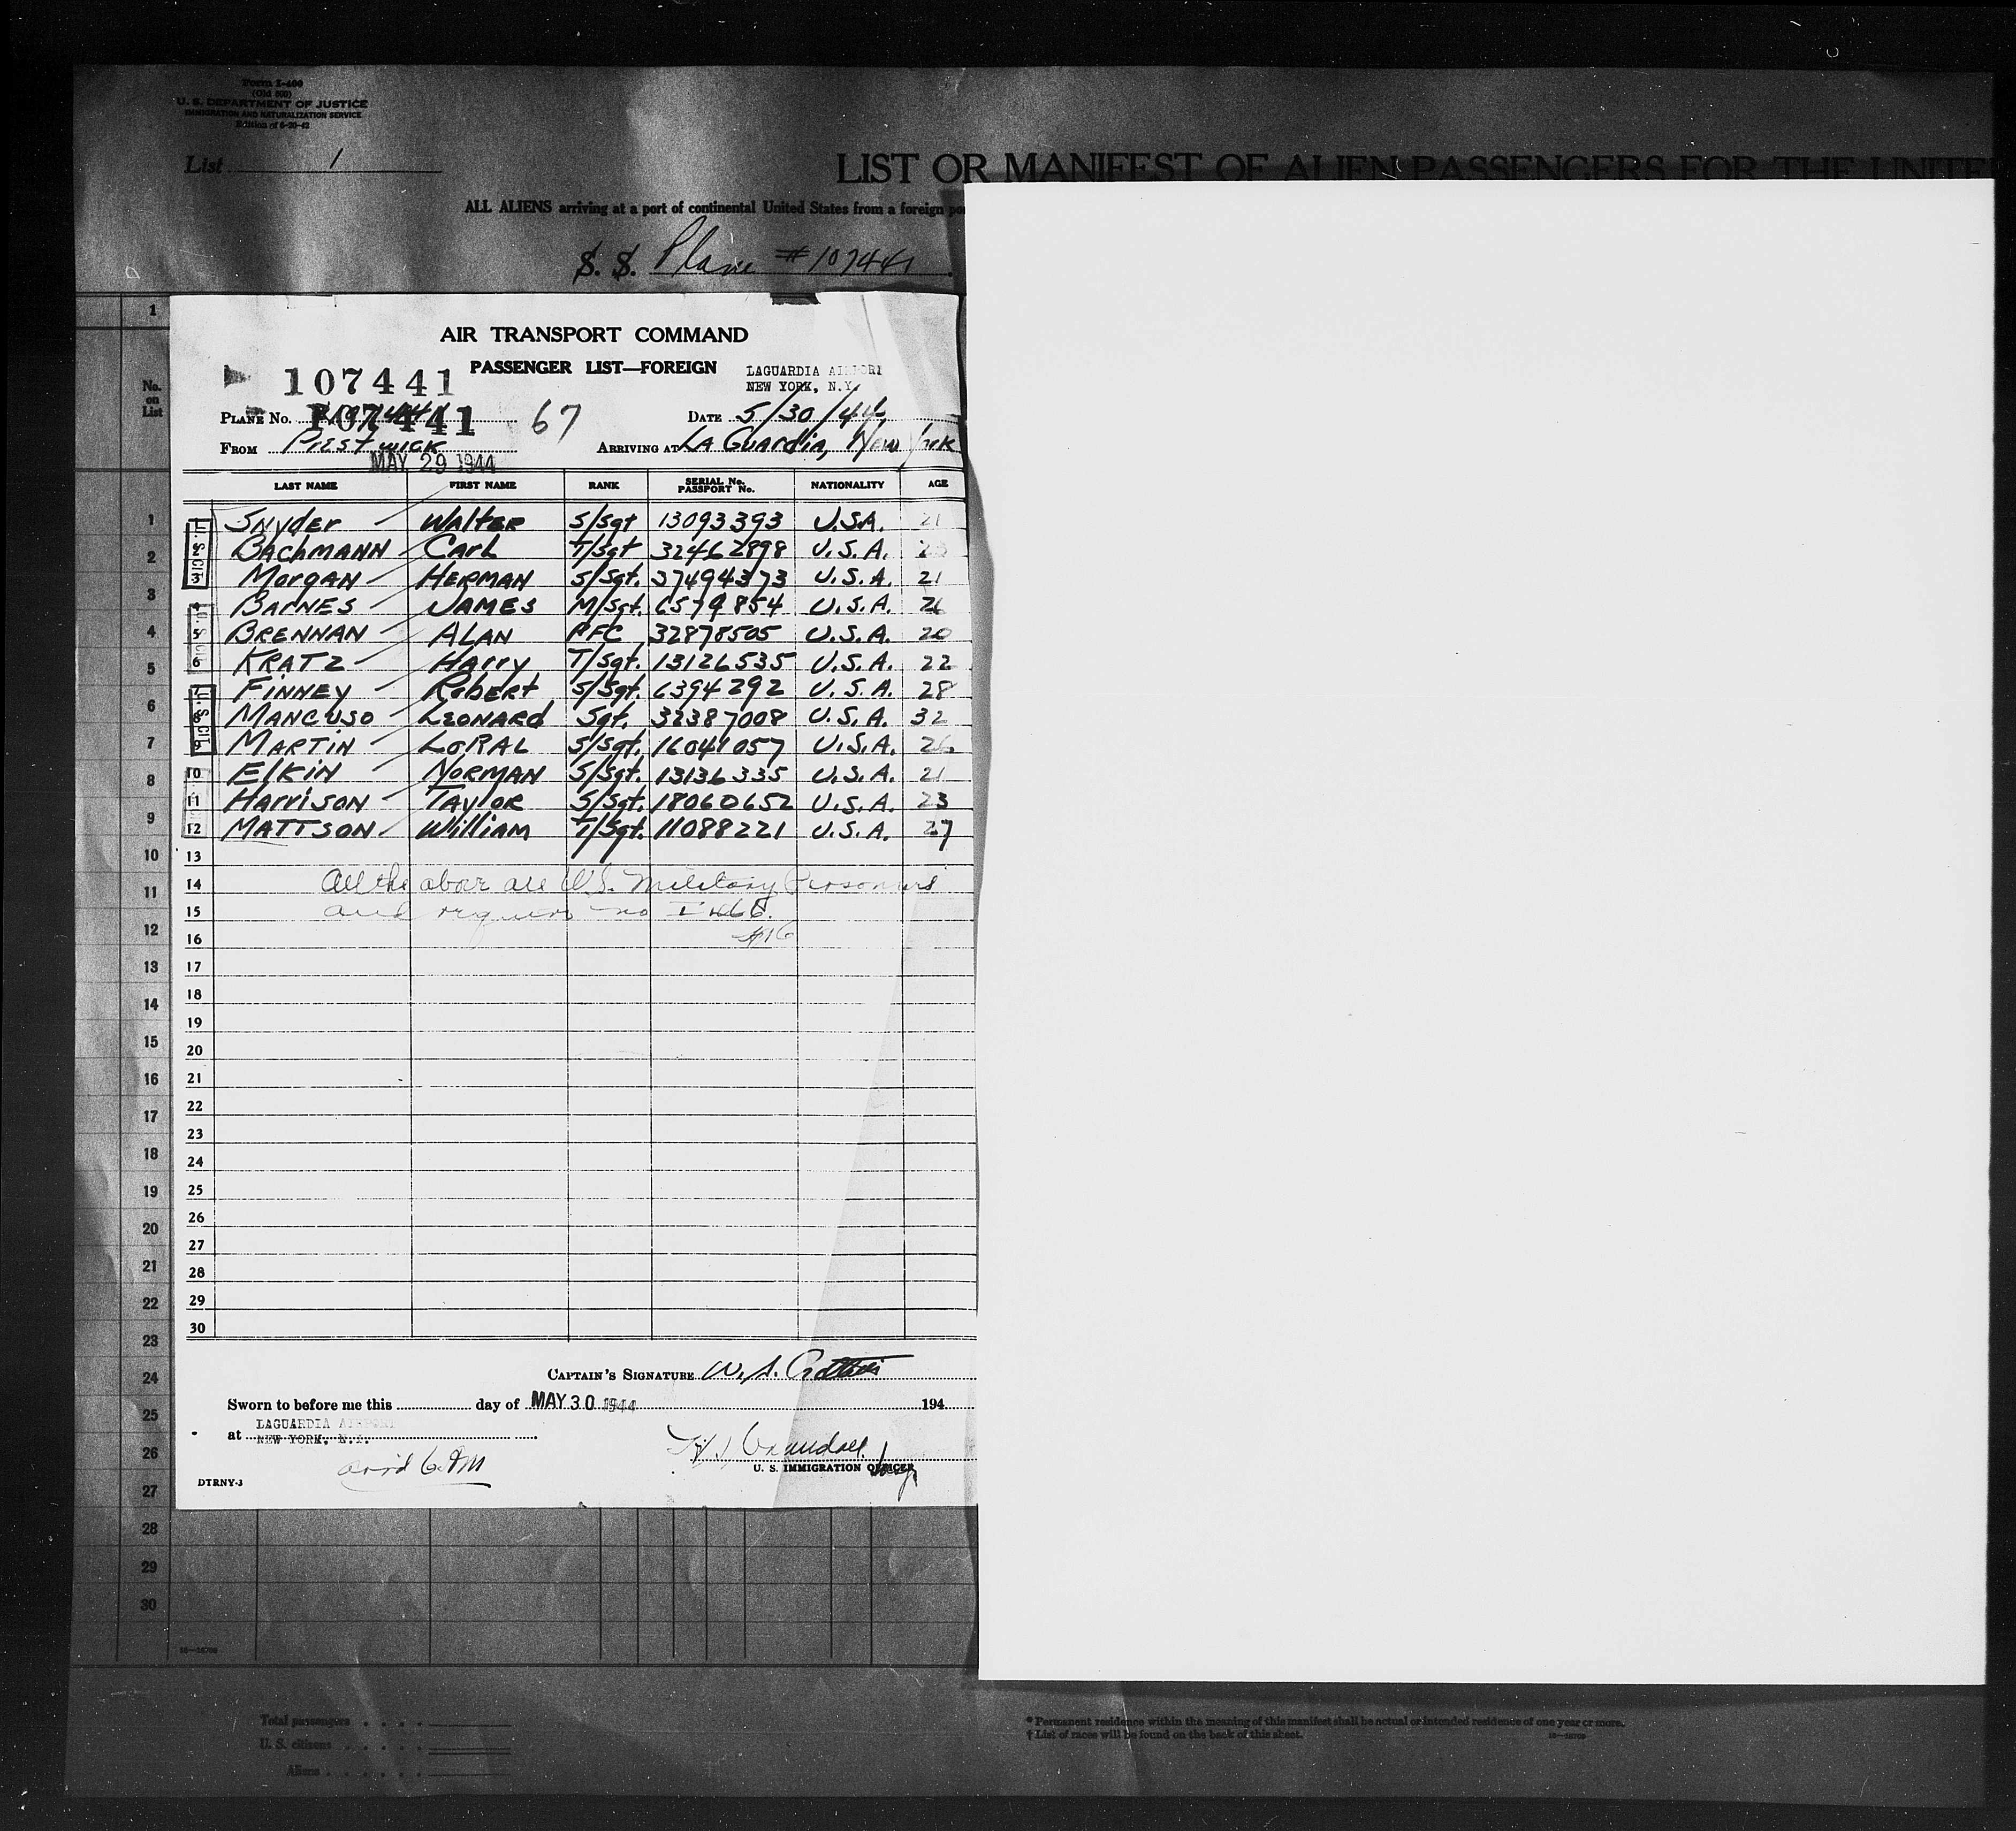 Form I-400
(Old 500)
U. S. DEPARTMENT OF JUSTICE
IMMIGRATION AND NATURALIZATION SERVICE
Edition of 6-20-42
List 1
LIST OR MANIFEST OF ALIEN PASSENGERS FOR THE UNITE
ALL ALIENS arriving at a port of continental United States from a foreign po
S. S. Plane #107441
AIR TRANSPORT COMMAND
PASSENGER LIST—FOREIGN
107441
LAGUARDIA AIRPORT
NEW YORK, N.Y.
PLANE No. 107441 67 DATE 5/30/44
FROM Prestwick ARRIVING AT La Guardia, New York
MAY 29 1944
No. on List
LAST NAME FIRST NAME RANK SERIAL No. PASSPORT No. NATIONALITY AGE
Snyder Walter S/Sgt 13093393 U.S.A. 21
2 BACHMANN Carl T/Sgt 32462898 U.S.A.
3 Morgan HERMAN S/Sgt. 37494373 U.S.A. 21
4 BARNES JAMES M/Sgt. 6579854 U.S.A. 26
5 BRENNAN ALAN PFC 32878505 U.S.A. 20
6 KRATZ Harry T/Sgt. 13126535 U.S.A. 22
FINNEY Robert S/Sgt. 6394292 U.S.A. 28
8 MANCUSO LEONARD Sgt. 32387008 U.S.A. 32
9 MARTIN LORAL S/Sgt. 16041057 U.S.A. 26
10 Elkin NORMAN S/Sgt. 13136335 U.S.A. 21
11 HARRISON TAYLOR S/Sgt. 18060652 U.S.A. 23
12 MATTSON William T/Sgt. 11088221 U.S.A. 27
13
14 All the above are U.S. Military Personnel
15 and require no I 466.
16 #16
17
18
19
20
21
22
23
24
25
26
27
28
29
30
CAPTAIN'S SIGNATURE W. S.
Sworn to before me this day of MAY 30 1944 194
LAGUARDIA AIRPORT
at NEW YORK, N.Y.
arrid 6 PM
Crandall
U. S. IMMIGRATION OFFICER
DTRNY-3
1
1
2
3
4
5
6
7
8
9
10
11
12
13
14
15
16
17
18
19
20
21
22
23
24
25
26
27
28
29
30
Total passengers
U. S. citizens
Aliens
* Permanent residence within the meaning of this manifest shall be actual or intended residence of one year or more.
† List of races will be found on the back of this sheet.